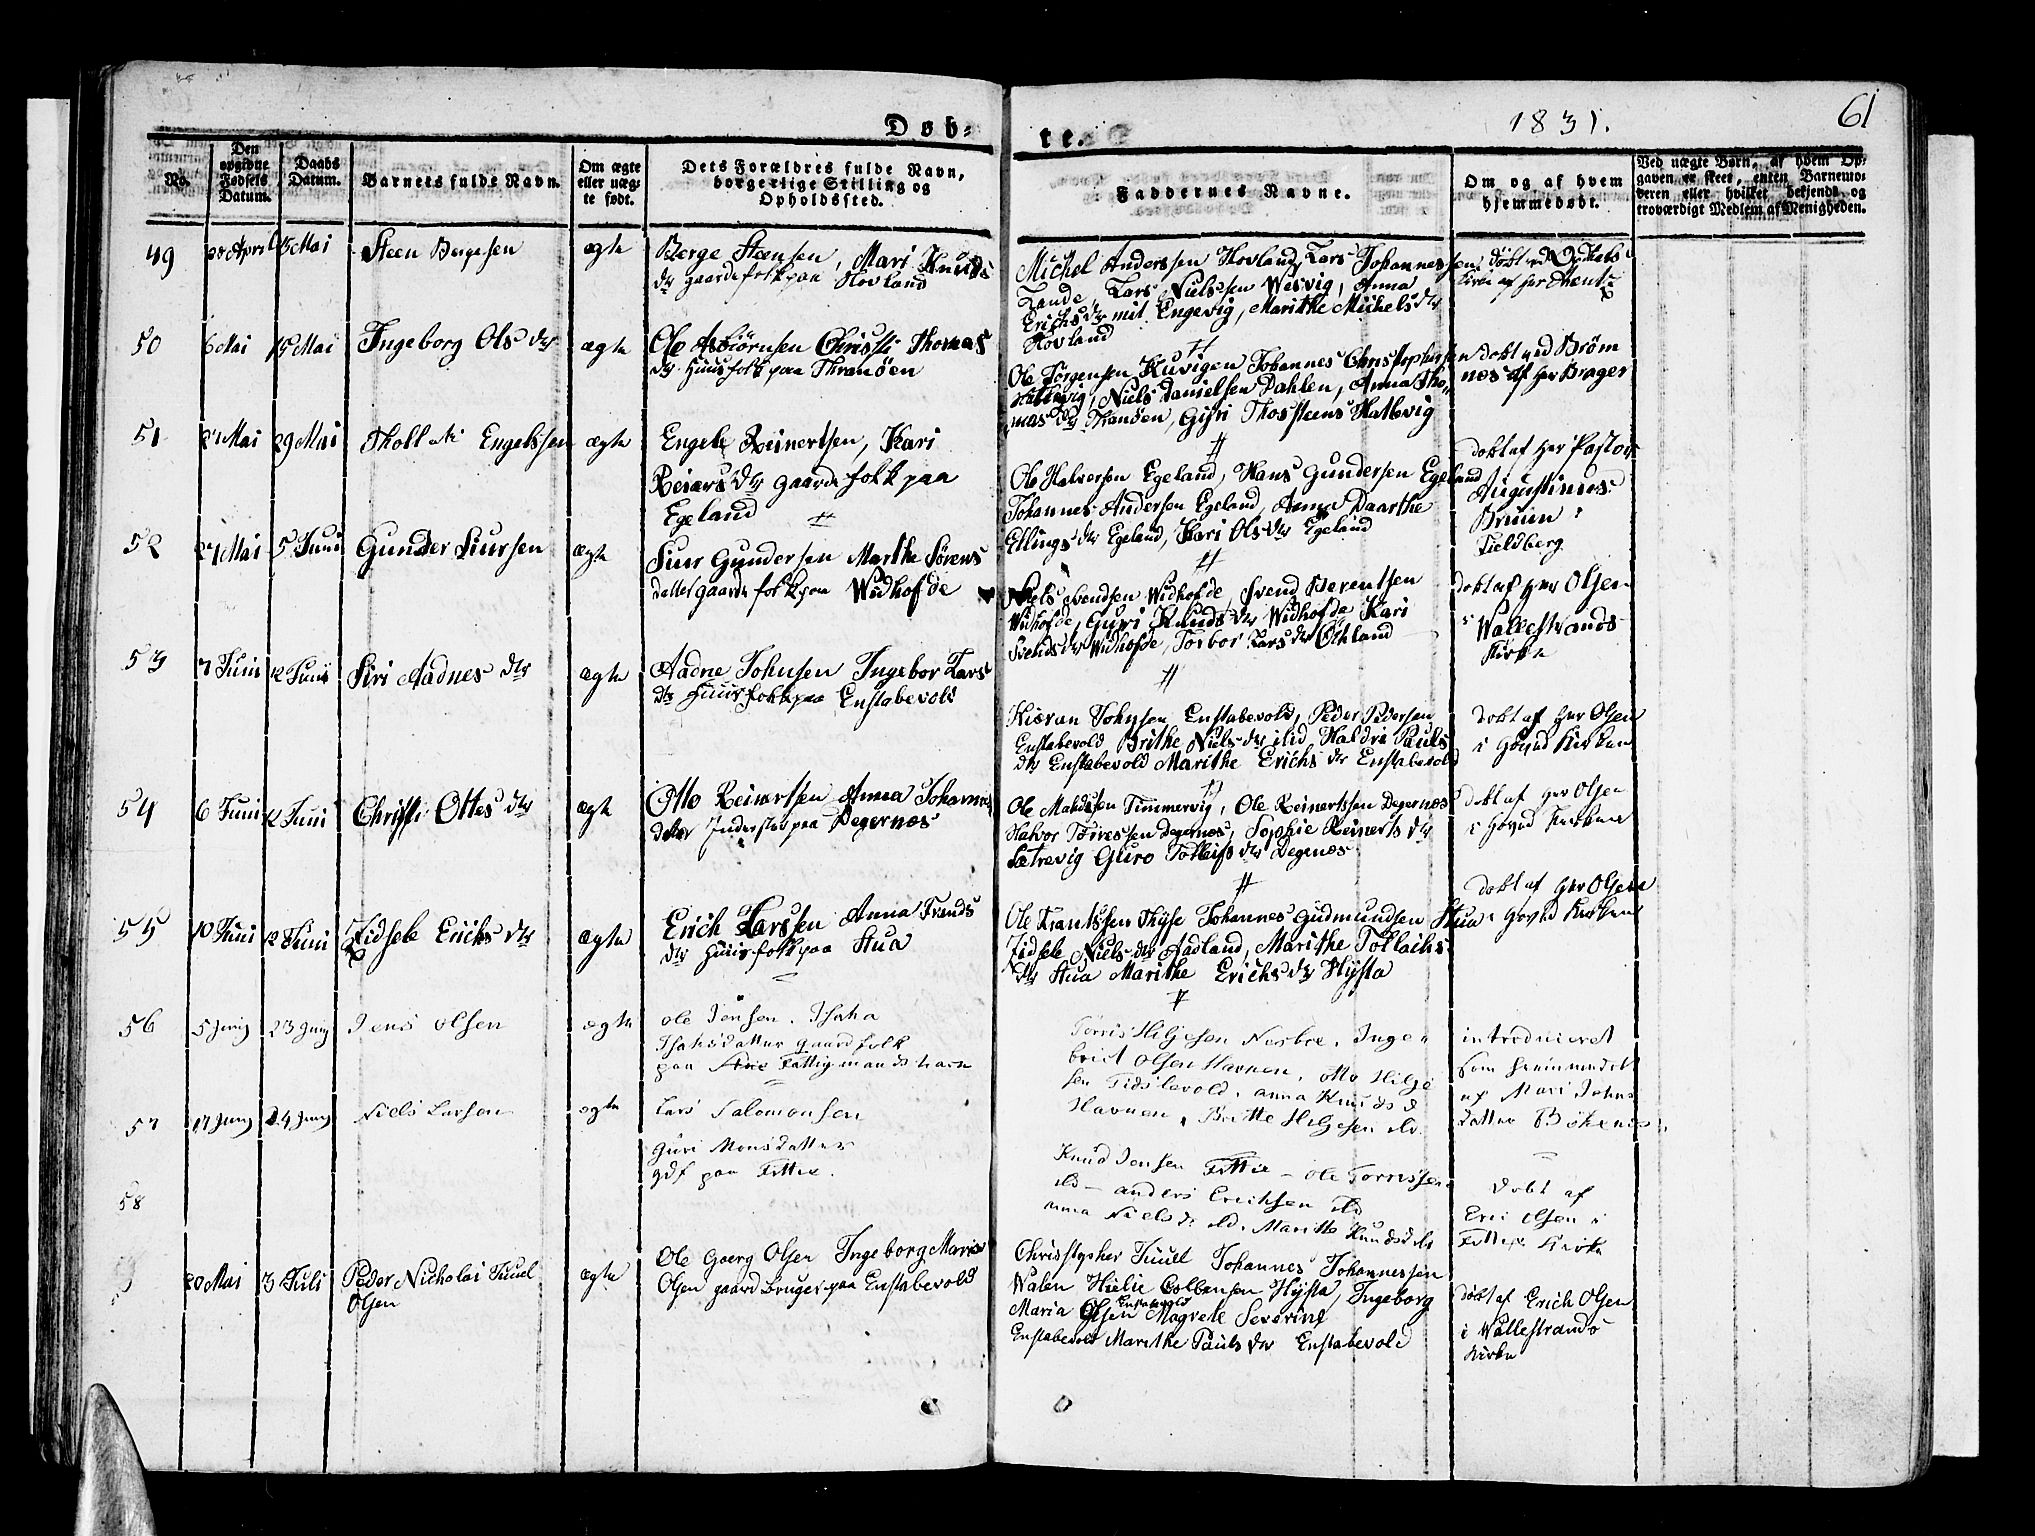 Døb-
te.
1831.
61
No.
Den
opgivne
Fødsels
Datum.
Daabs
Datum.
Barnets fulde Navn.
Om ægte
eller uæg-
te født.
Dets Forældres fulde Navn,
borgerlige Stilling og
Opholdssted.
Faddernes Navne.
Om og af hvem
hjemmedøbt.
Ved uægte Børn, af hvem Op-
gaven er skeet, enten Barnemo-
deren eller hvilket bekjendt og
troværdigt Medlem af Menigheden.
49
April
15 Mai
Steen Bergesen
ægte
Berge Steensen, Mari Knuds
dtr gaardefolk paa Hovland
Michel Anderssen Hovland, Lars Johannessen
Lande, Lars Nielssen Wesvig, Anna
Erichs dtr mit Engevig, Marithe Michels dtr
Hovland
50
6 Mai
15 Mai
Ingeborg Ols dtr
ægte
Ole Asbiörnsen Christi Thomas
dtr Huusfolk paa Thranöen
Ole Jörgensen Kuvigen Johannes Christophersen
Hattevig, Niels Danielsen Dahlen, Anna Tho-
mas dtr Thranöen, Gyri Thossteens Hattevig
döbt ved Bröm
nes af Her Brager
51
Mai
29 Mai
Engelssen
ægte
Engele Reinertsen, Kari
Reiærs dtr gaardefolk paa
Egeland
Ole Halversen Egeland, Hans Gundersen Egeland
Johannes Andersen Egeland, Anna Daarthe
Ellings dtr Egeland, Kari Ols dtr Egeland
döbt af Her Pastor
Augustinus
Bruun
Fieldberg
52
Mai
5 Juni
Gunder Siursen
ægte
Siur Gundersen Marthe Sörens
datter gaardefolk paa Widhofde
Niels Svendsen Widhofde, Svend Berentsen
Widhofde, Guri Knuds dtr Widhofde Kari
Svends dtr Widhofde, Torbor Lars dtr Öchland
döbt af Her Olsen
i Wallestrands
Kirke
53
7 Juni
12 Juni
Siri Aadnes dtr
ægte
Aadne Johnsen Ingebor Lars
dtr Huusfolk paa Enstabevold
Johnsen Enstabevold, Peder Pedersen
Enstabevold Brithe Niels dtr ibid Haldri Pauls
dtr Enstabevold Marithe Erichs dtr Enstabevold
döbt af Her Olsen
i Kirken
54
6 Juni
12 Juni
Christi Ottes dtr
ægte
Otto Reinertsen Anna Johannes
datter Inderster paa Degernæs
Ole Timmervig, Ole Reinertssen Degernæs
Halvor Degernæs, Sophie Reinerts dtr
Sætrevig Guro Tolleifs dtr Degenæs
döbt af Her Olsen
i Kirken
55
10 Juni
12 Juni
Zidsele Erichs dtr
ægte
Erich Larssen Anna Frends
dtr Huusfolk paa Stua
Ole Johannes Gudmundsen Stua
Zidsele Niels dtr Aadland, Marithe Tollaichs
dtr Stua Marithe Erichs dtr Hysta
döbt af Her Olsen
i Kirken
56
5 Junij
23 Junij
Jens Olsen
ægte
Ole Jensen.
gaardfolk
paa Fattigmandshavn
Törris Hiljesen Nesböe. Inge-
brict Olsen Havnen. Otto Hilje
sen Tidslevold. Anna Knuds d
Havnen, Britte Hiljesen ibd.
introducieret
som hiemmedöbt
af Mari Johns
datter Bökenes.
57
17 Junij
24 Junij
Niels Larsen
ægte
Lars Salomonsen
Guri Monsdatter
gdf paa Fittie.
Knud Jensen Fittie - Ole Torrissen
ib - anders Erichsen ibd
anna Niels d ibd. Maritte Knudsd ibd
döbt af
Eric Olsen i
Fittie Kirke
58
20 Mai
3 Juli
Peder Nicholai Juuel
Olsen
ægte
Ole Goerg Olsen Ingeborg Maria
Olsen gaard Bruger paa Enstabevold
Christopher Juuel Johannes Johannessen
Walen Hielie Colbensen Hysta, Ingeborg
Maria Olsen Enstabevold Magrete Severine
Enstabevold Marithe Pauls dtr Enstabevold
döbt af Erich Olsen
i Wallestrands
Kirke